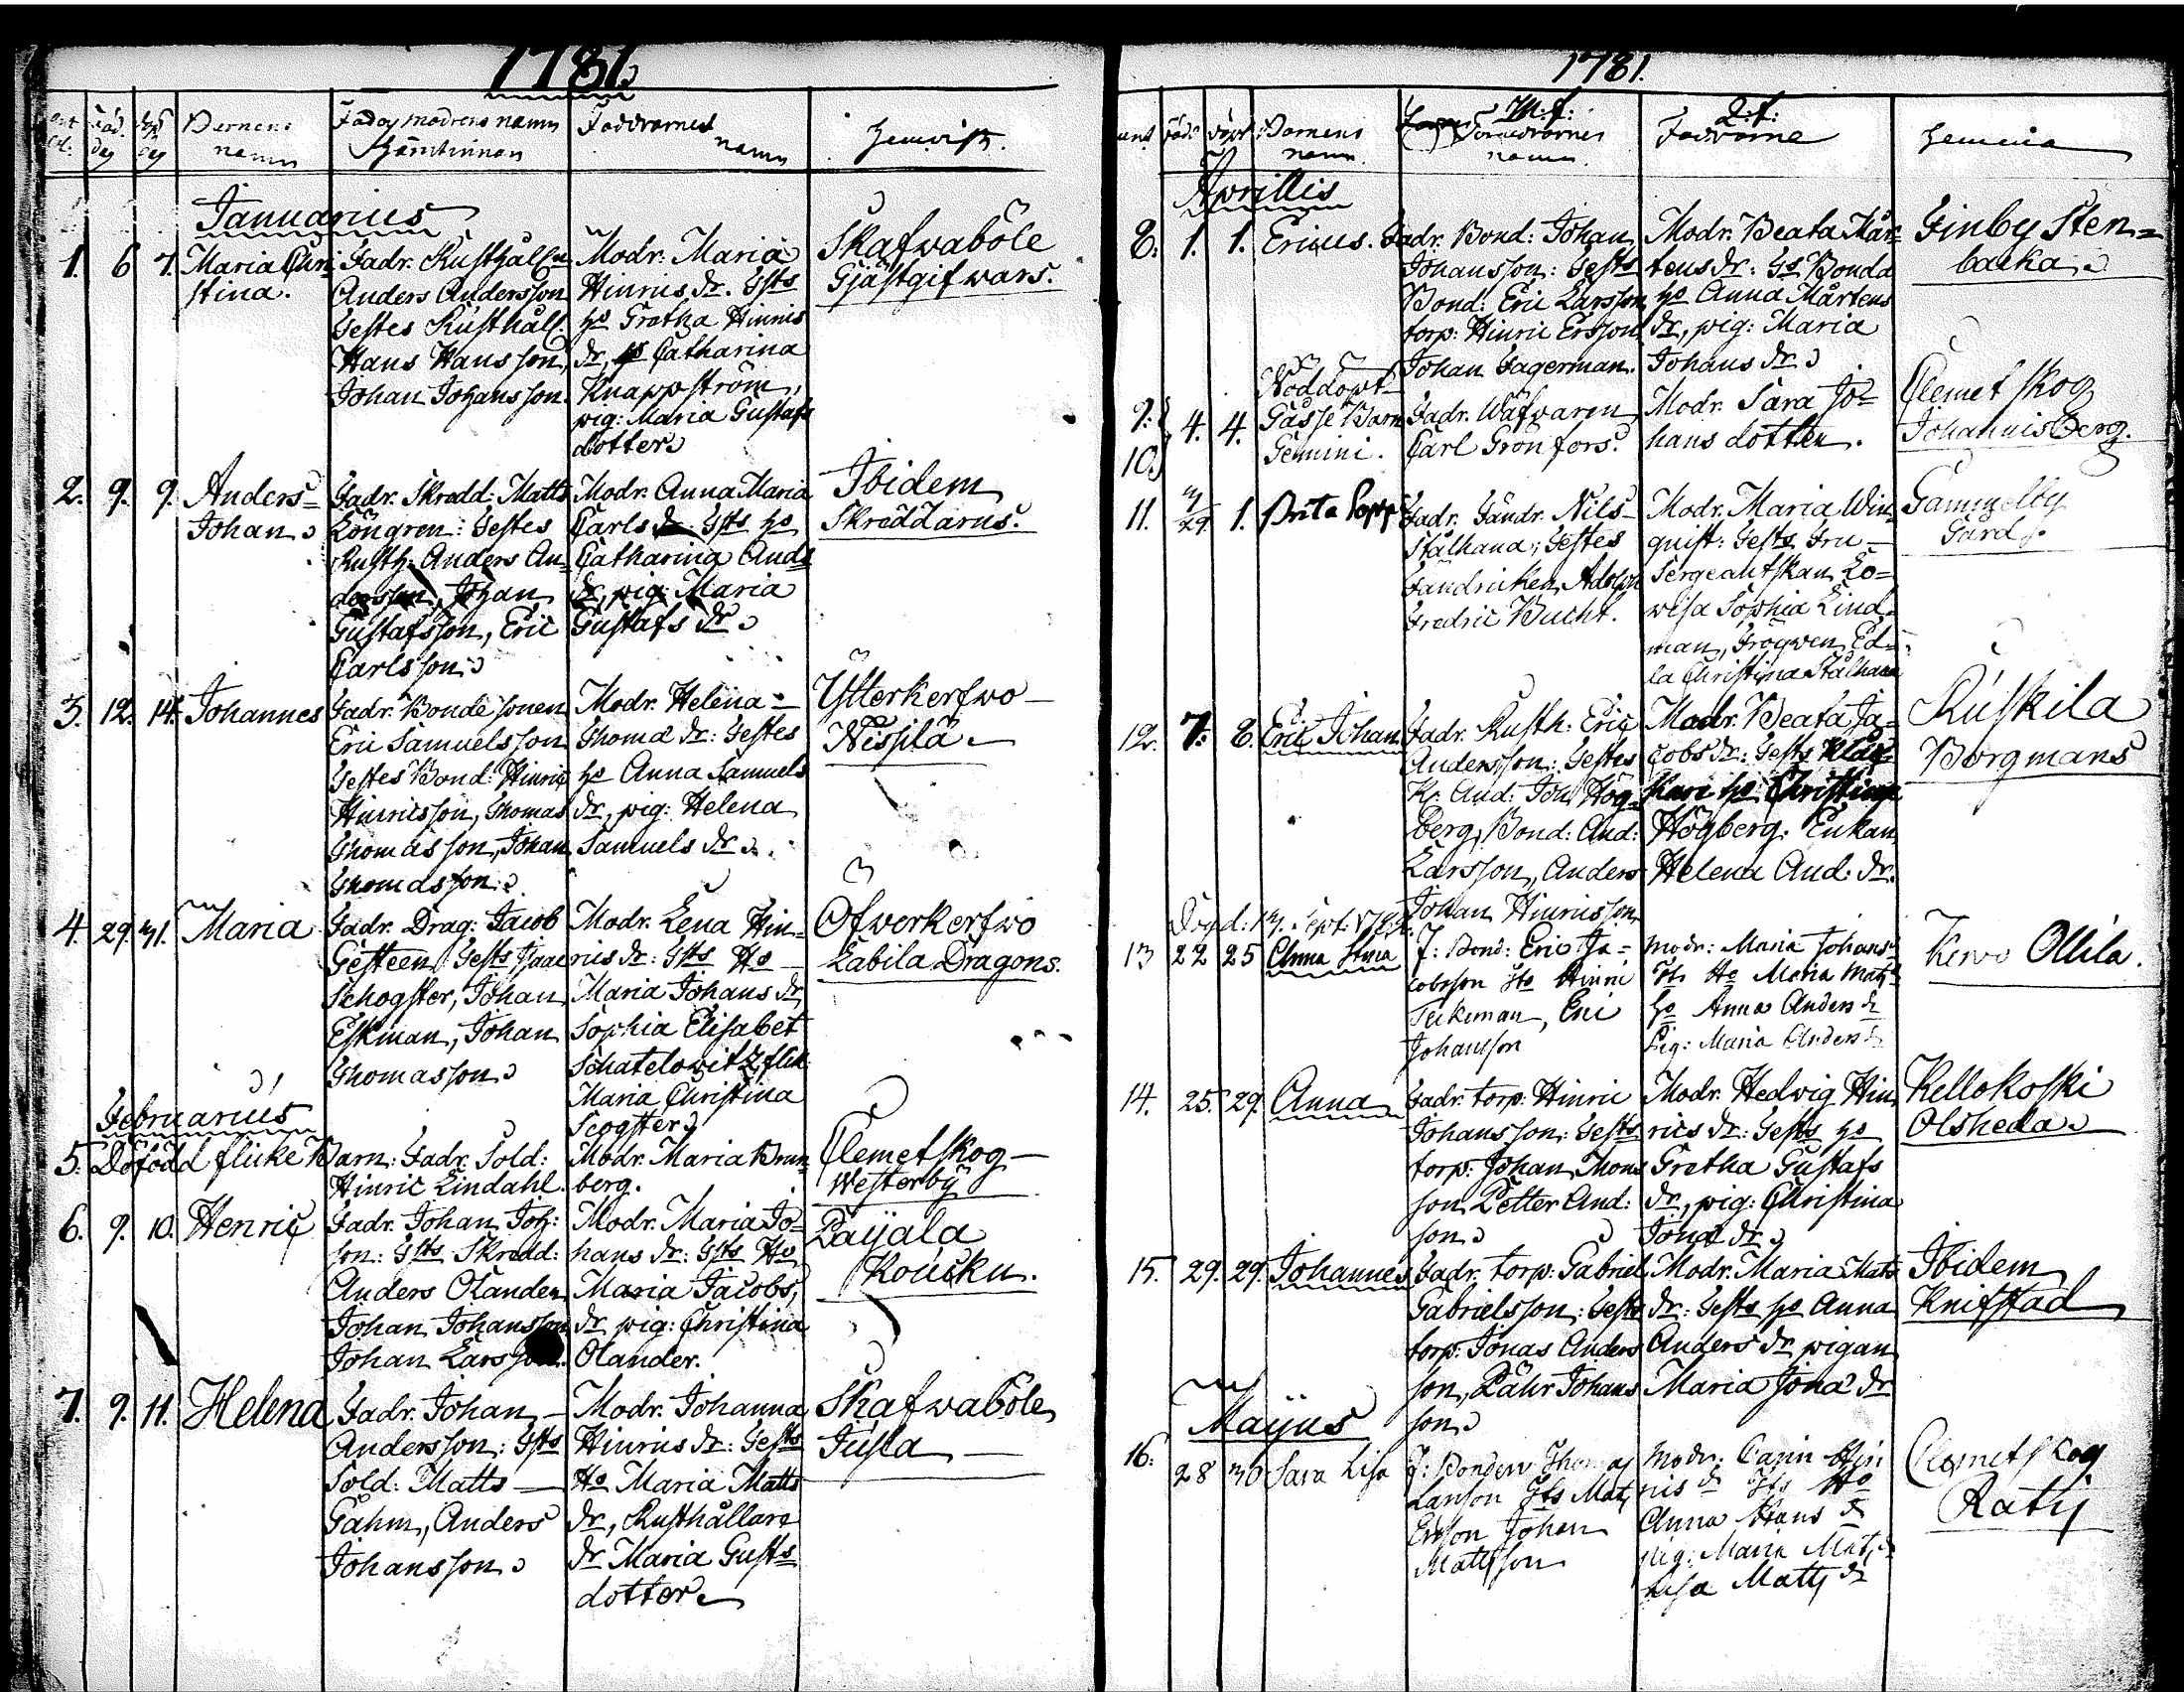 1781.
Barnens namn
Fadr och modrens namn
Faddrarnes namn
Hemvist.
Januarius
1. 6 7. Maria Chri
stina.
Fadr. Rusthåll:n
Anders Andersson
Testes Rusthåll:
Hans Hansson,
Johan Johansson.
Modr. Maria
Hinrics dr. Tsts
ho Gretha Hinrics
dr, ho Catharina
Knappström,
pig: Maria Gustafs
dotter
Skafwaböle
Gjästgifwars.
2. 9. 9. Anders=
Johan
Fadr. Skredd: Matts
Löngren: Testes
Rusth: Anders An=
dersson, Johan
Gustafsson, Eric
Carlsson
Modr. Anna Maria
Carls dr Tsts ho
Catharina Ands
dr, pig: Maria
Gustafs dr
Ibidem
Skreddarns.
3. 12. 14. Johannes
Fadr. Bonde sonen
Eric Samuelsson
Testes Bond: Hinric
Hinricsson, Thomas
Thomasson, Johan
Thomasson
Modr. Helena
Thoma dr: Testes
ho Anna Samuels
dr, pig: Helena
Samuels dr
Ytterkerfwo
Nissilä
4. 29. 31. Maria
Fadr. Drag: Jacob
Gesteen Tests Isaac
Schogster, Johan
Ekman, Johan
Thomasson
Modr. Lena Hin=
rics dr: Tsts Ho
Maria Johans dr
Sophia Elisabet
Schatelowitz, flick:
Maria Christina
Scogster
Öfwerkerfwo
Labila Dragons.
Februarius
5. Dödfödd flicke Barn: Fadr. Sold:
Hinric Lindahl.
Modr. Maria Brun
berg.
Clemetskog
Westerby
6. 9. 10. Henric
Fadr. Johan Joh:
son: Tsts Skredd:
Anders Olander
Johan Johansson
Johan Larsson.
Modr. Maria Jo=
hans dr: Tsts Ho
Maria Jacobs,
dr pig: Christina
Olander.
Paijala
Koucku.
7. 9. 11. Helena
Fadr. Johan
Andersson: Tsts
Sold: Matts
Gahm, Anders
Johansson
Modr. Johanna
Hinrics dr: Tests
Ho Maria Matts
dr, Rusthållare
dr Maria Gusts
dotter
Skafwaböle
Jusla
1781.
Barnens namn.
M:f:
namn.
Q:f:
Faddrarne
Aprillis
8. 1. 1. Ericus.
Fadr. Bond: Johan
Johansson: Tests
Bond: Eric Larsson
torp: Hinric Ersson
Johan Fagerman.
Modr. Beata Mår=
tens dr: Ts Bonda
ho Anna Mårtens
dr, pig: Maria
Johans dr
Finby Sten=
backa
9. 10. 4. 4. Nöddöpt
Gosse Barn
Gemini.
Fadr. Wäfwaren
Carl Grönfors.
Modr. Sara Jo=
hans dotter.
Clemetskog
Johannisberg.
11. 29 1. Brita
Fadr. Fändr. Nils
Stålhana; Testes
Fändricken Adolph
Fredric Bucht.
Modr. Maria Win
quist: Tests Fru
Sergeantskan Lo=
wisa Sophia Lind
man, Fröwen Ed=
la Christina Stålhana
Gammelby
Gård.
12. 7. 8. Eric Johan
Fadr. Rusth: Eric
Andersson: Testes
Kl. And: Joh Hög
berg, Bond: And:
Larsson, Anders
Johan Hinricsson
Modr. Beata Ja=
cobs dr: Tests Klåc
kare ho Christina
Högberg. Enkan
Helena And. dr.
Ruskila
Borgmans
13 22 25 Anna Stina
F: Bond: Eric Ja=
cobsson Sts Hinric
Teikman, Eric
Johansson
Modr: Maria Johans
Ts Ho Maria Mats
ho Anna Anders dr
Pig: Maria Anders dr
Kervo Ollila.
14. 25. 29. Anna
Fadr. torp: Hinric
Johansson: Tests
torp: Johan Thoms
son Petter And:
son
Modr. Hedwig Hin
rics dr: Tests ho
Gretha Gustafs
dr, pig: Christina
Jona dr
Kellokoski
Olsheda
15. 29. 29. Johannes
Fadr. torp: Gabriel
Gabrielsson: Tests
torp: Jonas Anders
son, Pähr Johans
son
Modr. Maria Mats
dr: Tests ho Anna
Anders dr pigan
Maria Jona dr
Ibidem
Knifstad
Maijus
16: 28 30 Sara Lisa
F: Bonden Thomas
Larsson Tsts Mats
Ersson Johan
Matsson
Modr: Carin Hin
rics dr Tsts Ho
Anna Hans dr
pig: Maria Mats dr
Lisa Mats dr
Clemetskog
Räty